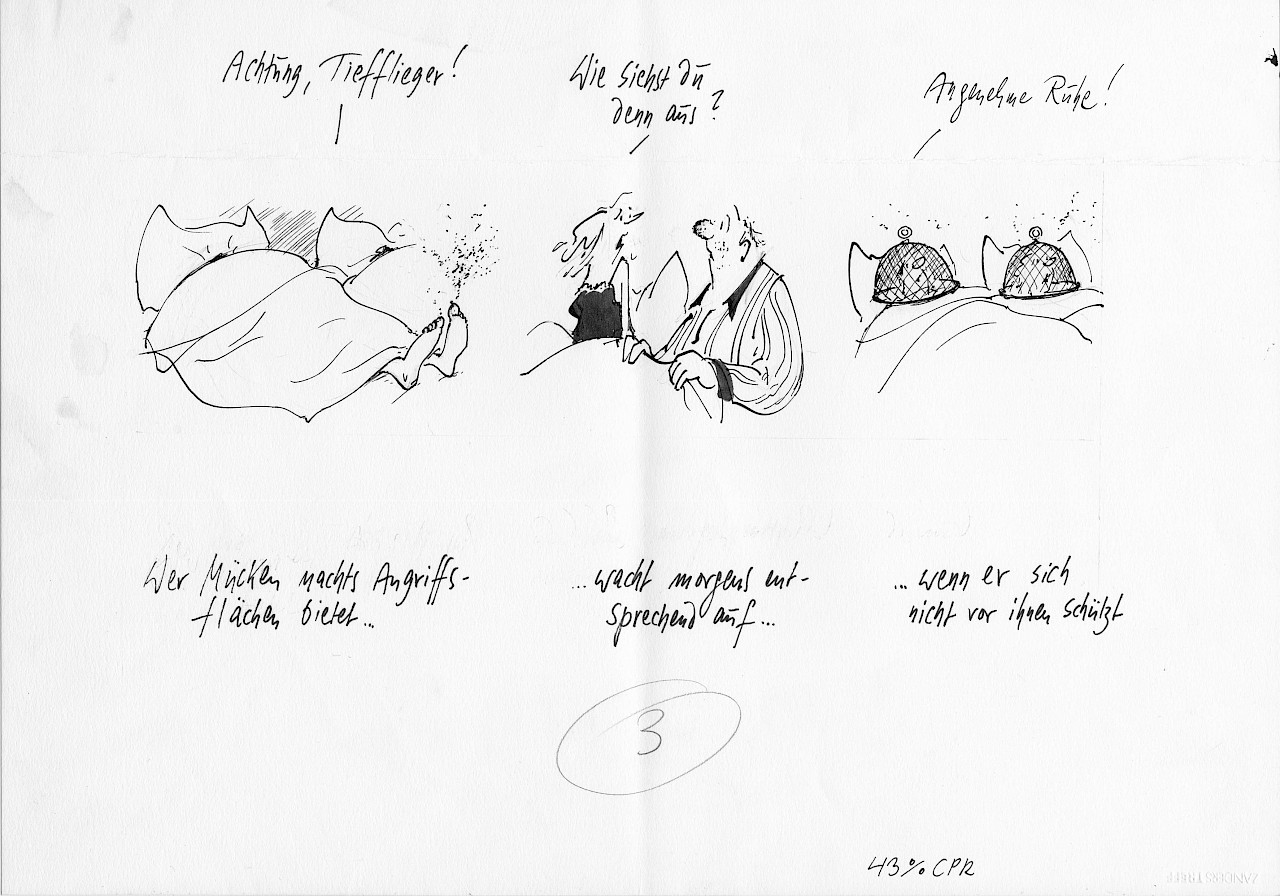 Achtung, Tiefflieger!
Wie siehst du
denn aus?
Angenehme Ruhe!
Wer Mücken nachts Angriffs-
flächen bietet...
...wacht morgens ent-
sprechend auf...
...wenn er sich
nicht vor ihnen schützt
3
43% CPR